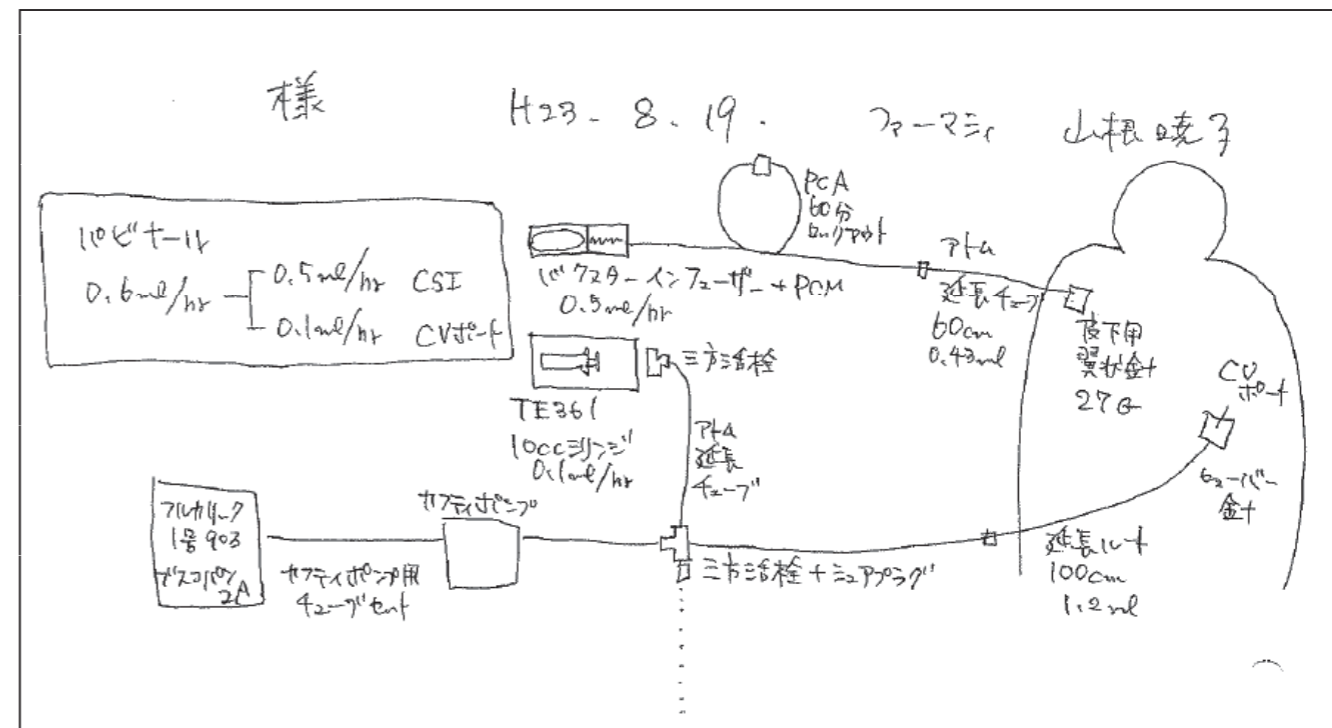 様
H23. 8. 19.
ファーマシィ 山根暁子
パビナール
0.6ml/hr
0.5ml/hr CSI
0.1ml/hr CVポート
PCA
60分
ロックアウト
バクスターインフューザー + PCM
0.5ml/hr
アトム
延長チューブ
60cm
0.43ml
皮下用
翼状針
27G
CV
ポート
ヒューバー
針
TE361
10ccシリンジ
0.1ml/hr
三方活栓
アトム
延長
チューブ
フルカリック
1号 903
ブスコパン
2A
カフティポンプ用
チューブセット
カフティポンプ
三方活栓 + シュアプラグ
延長ルート
100cm
1.2ml